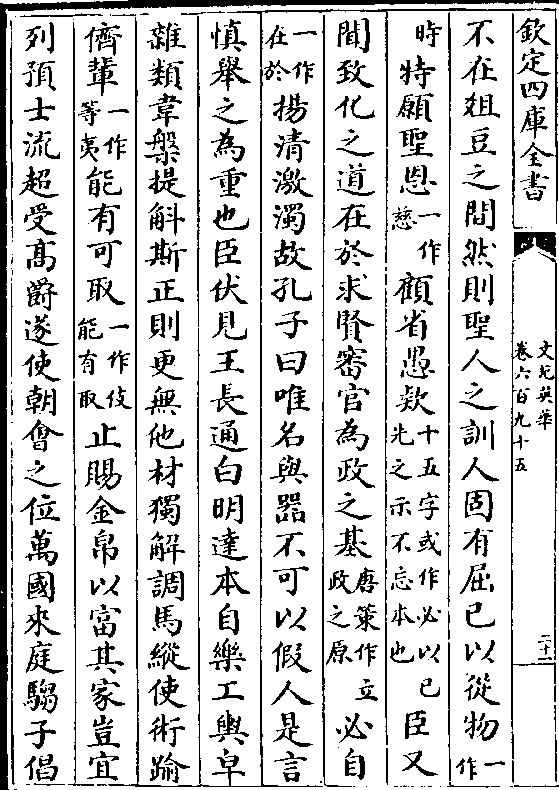 欽定四庫全書
文苑英華
卷六百九十五
二十一
不在俎豆之間然則聖人之訓人固有屈己以從物一作
時特願聖恩一作慈顧省愚欵十五字或作必以己先之示不忘本也臣又
聞致化之道在於求賢審官為政之基唐策作立政之原必自
一作在於揚清激濁故孔子曰唯名與器不可以假人是言
慎舉之為重也臣伏見王長通白明達本自樂工輿皁
雜類韋槃提斛斯正則更無他材獨解調馬縱使術踰
儕輩一作等夷能有可取一作伎能有取止賜金帛以富其家豈宜
列預士流超受髙爵遂使朝會之位萬國來庭騶子倡